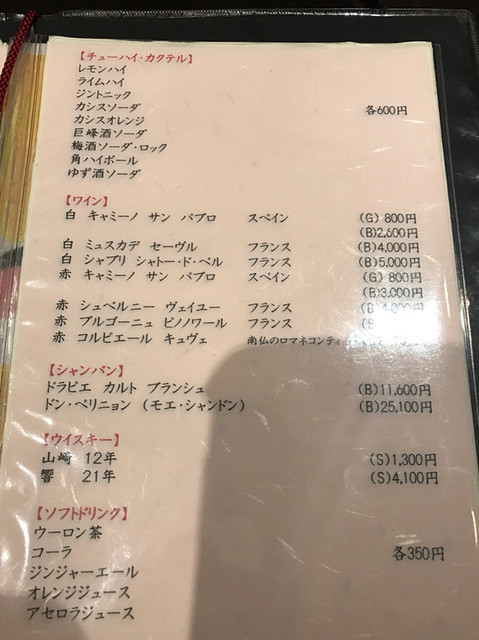 【チューハイ・カクテル】
レモンハイ
ライムハイ
ジントニック
カシスソーダ 各600円
カシスオレンジ
巨峰酒ソーダ
梅酒ソーダ・ロック
角ハイボール
ゆず酒ソーダ
【ワイン】
白 キャミーノ サン パブロ スペイン (G) 800円
(B)2,600円
白 ミュスカデ セーヴル フランス (B)4,000円
白 シャブリ シャトー・ド・ベル フランス (B)5,000円
赤 キャミーノ サン パブロ スペイン (G) 800円
(B)3,000円
赤 シュベルニー ヴェイユー フランス
赤 ブルゴーニュ ピノノワール フランス
赤 コルビエール キュヴェ 南仏のロマネコンティ
【シャンパン】
ドラピエ カルト ブランシュ (B)11,600円
ドン・ペリニョン (モエ・シャンドン) (B)25,100円
【ウイスキー】
山崎 12年 (S)1,300円
響 21年 (S)4,100円
【ソフトドリンク】
ウーロン茶
コーラ 各350円
ジンジャーエール
オレンジジュース
アセロラジュース